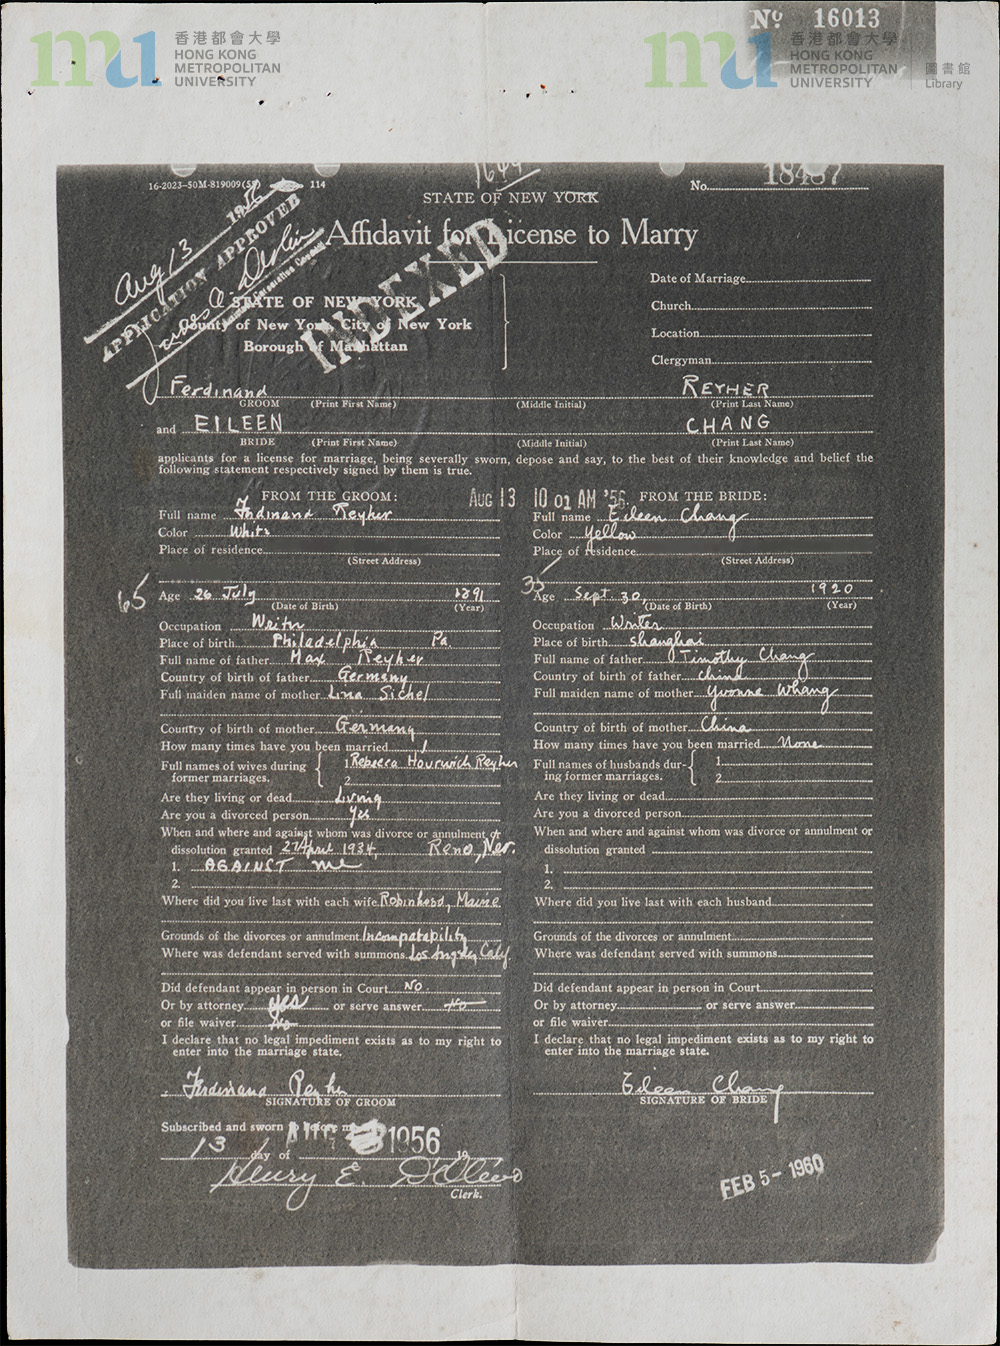 香港都會大學
HONG KONG
METROPOLITAN
UNIVERSITY
Nº 16013
香港都會大學
HONG KONG
METROPOLITAN
UNIVERSITY
圖書館
Library
16-2023-50M-819009(55) 114
No. 18487
STATE OF NEW YORK
Affidavit for License to Marry
INDEXED
Aug 13 1956
APPLICATION APPROVED
STATE OF NEW YORK
County of New York, City of New York
Borough of Manhattan
Date of Marriage
Church
Location
Clergyman
Ferdinand REYHER
GROOM (Print First Name) (Middle Initial) (Print Last Name)
and EILEEN CHANG
BRIDE (Print First Name) (Middle Initial) (Print Last Name)
applicants for a license for marriage, being severally sworn, depose and say, to the best of their knowledge and belief the
following statement respectively signed by them is true.
AUG 13 10 01 AM '56
FROM THE GROOM:
Full name Ferdinand Reyher
Color White
Place of residence
(Street Address)
65
Age 26 July 1891
(Date of Birth) (Year)
Occupation Writer
Place of birth Philadelphia Pa.
Full name of father Max Reyher
Country of birth of father Germany
Full maiden name of mother Lina Sichel
Country of birth of mother Germany
How many times have you been married 1
Full names of wives during
former marriages.
1 Rebecca Hourwich Reyher
2
Are they living or dead Living
Are you a divorced person Yes
When and where and against whom was divorce or annulment or
dissolution granted 27 April 1934, Reno, Nev.
1. AGAINST me
2.
Where did you live last with each wife Robinhood, Maine
Grounds of the divorces or annulment Incompatability
Where was defendant served with summons Los Angeles Calif.
Did defendant appear in person in Court No
Or by attorney yes or serve answer No
or file waiver No
I declare that no legal impediment exists as to my right to
enter into the marriage state.
Ferdinand Reyher
SIGNATURE OF GROOM
Subscribed and sworn to before me
13 day of AUG 1956 19
Henry E.
Clerk.
FROM THE BRIDE:
Full name Eileen Chang
Color Yellow
Place of residence
(Street Address)
35
Age Sept 30, 1920
(Date of Birth) (Year)
Occupation Writer
Place of birth Shanghai
Full name of father Timothy Chang
Country of birth of father China
Full maiden name of mother Yvonne Whang
Country of birth of mother China
How many times have you been married None
Full names of husbands dur-
ing former marriages.
1
2
Are they living or dead
Are you a divorced person
When and where and against whom was divorce or annulment or
dissolution granted
1.
2.
Where did you live last with each husband
Grounds of the divorces or annulment
Where was defendant served with summons
Did defendant appear in person in Court
Or by attorney or serve answer
or file waiver
I declare that no legal impediment exists as to my right to
enter into the marriage state.
Eileen Chang
SIGNATURE OF BRIDE
FEB 5 - 1960